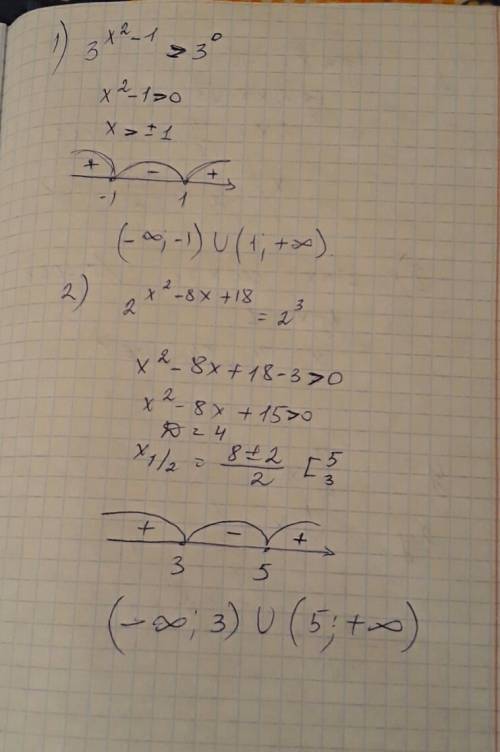 1) 3^{x^2-1} > 3^0
x^2-1>0
x > ±1
+ - +
-1 1
(-∞;-1) ∪ (1;+∞).
2) 2^{x^2-8x+18} = 2^3
x^2-8x+18-3>0
x^2-8x+15>0
D=4
x_{1/2} = \frac{8±2}{2} [5 3
+ - +
3 5
(-∞; 3) ∪ (5; +∞)